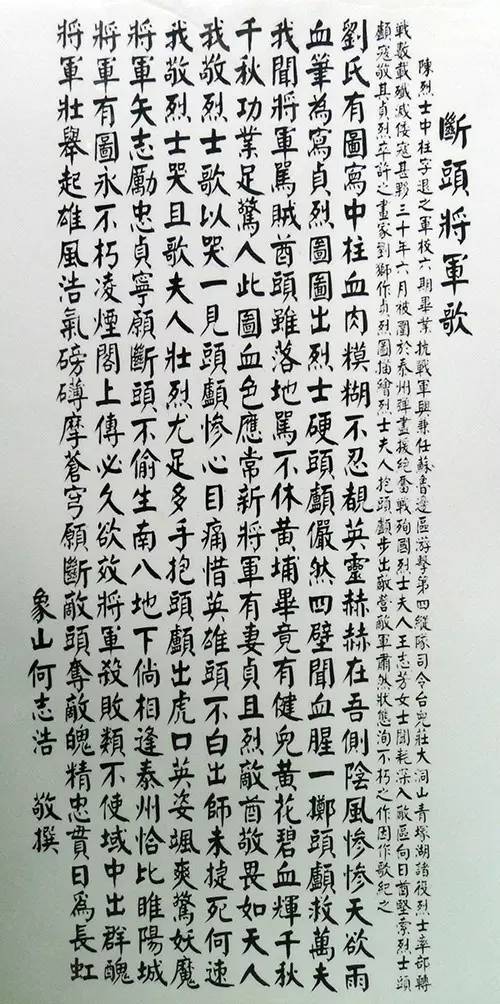 斷頭將軍歌
陳烈士中柱字退之軍校六期畢業抗戰軍興兼任蘇魯邊區游擊第四縱隊司令台兒莊大洞山青塚湖諸役烈士率部轉
戰數載殲滅倭寇甚夥三十年六月被圍於泰州彈盡援絕奮戰殉國烈士夫人王志芳女士聞耗深入敵區向日酋堅索烈士頭
顱寇敬其貞烈卒許之畫家劉獅作貞烈圖描繪烈士夫人抱頭顱步出敵營敵軍肅然狀態洵不朽之作因作歌紀之
劉氏有圖寫中柱血肉糢糊不忍覩英靈赫赫在吾側陰風慘慘天欲雨
血筆為寫貞烈圖圖出烈士硬頭顱儼然四壁聞血腥一擲頭顱救萬夫
我聞將軍罵賊酋頭雖落地罵不休黃埔畢竟有健兒黃花碧血輝千秋
千秋功業足驚人此圖血色應常新將軍有妻貞且烈敵酋敬畏如天人
我敬烈士歌以哭一見頭顱慘心目痛惜英雄頭不白出師未捷死何速
我敬烈士哭且歌夫人壯烈尤足多手抱頭顱出虎口英姿颯爽驚妖魔
將軍矢志勵忠貞寧願斷頭不偷生南八地下倘相逢泰州恰比睢陽城
將軍有圖永不朽凌煙閣上傳必久欲效將軍殺敗類不使域中出群醜
將軍壯舉起雄風浩氣磅礡摩蒼穹願斷敵頭奪敵魄精忠貫日為長虹
象山何志浩 敬撰